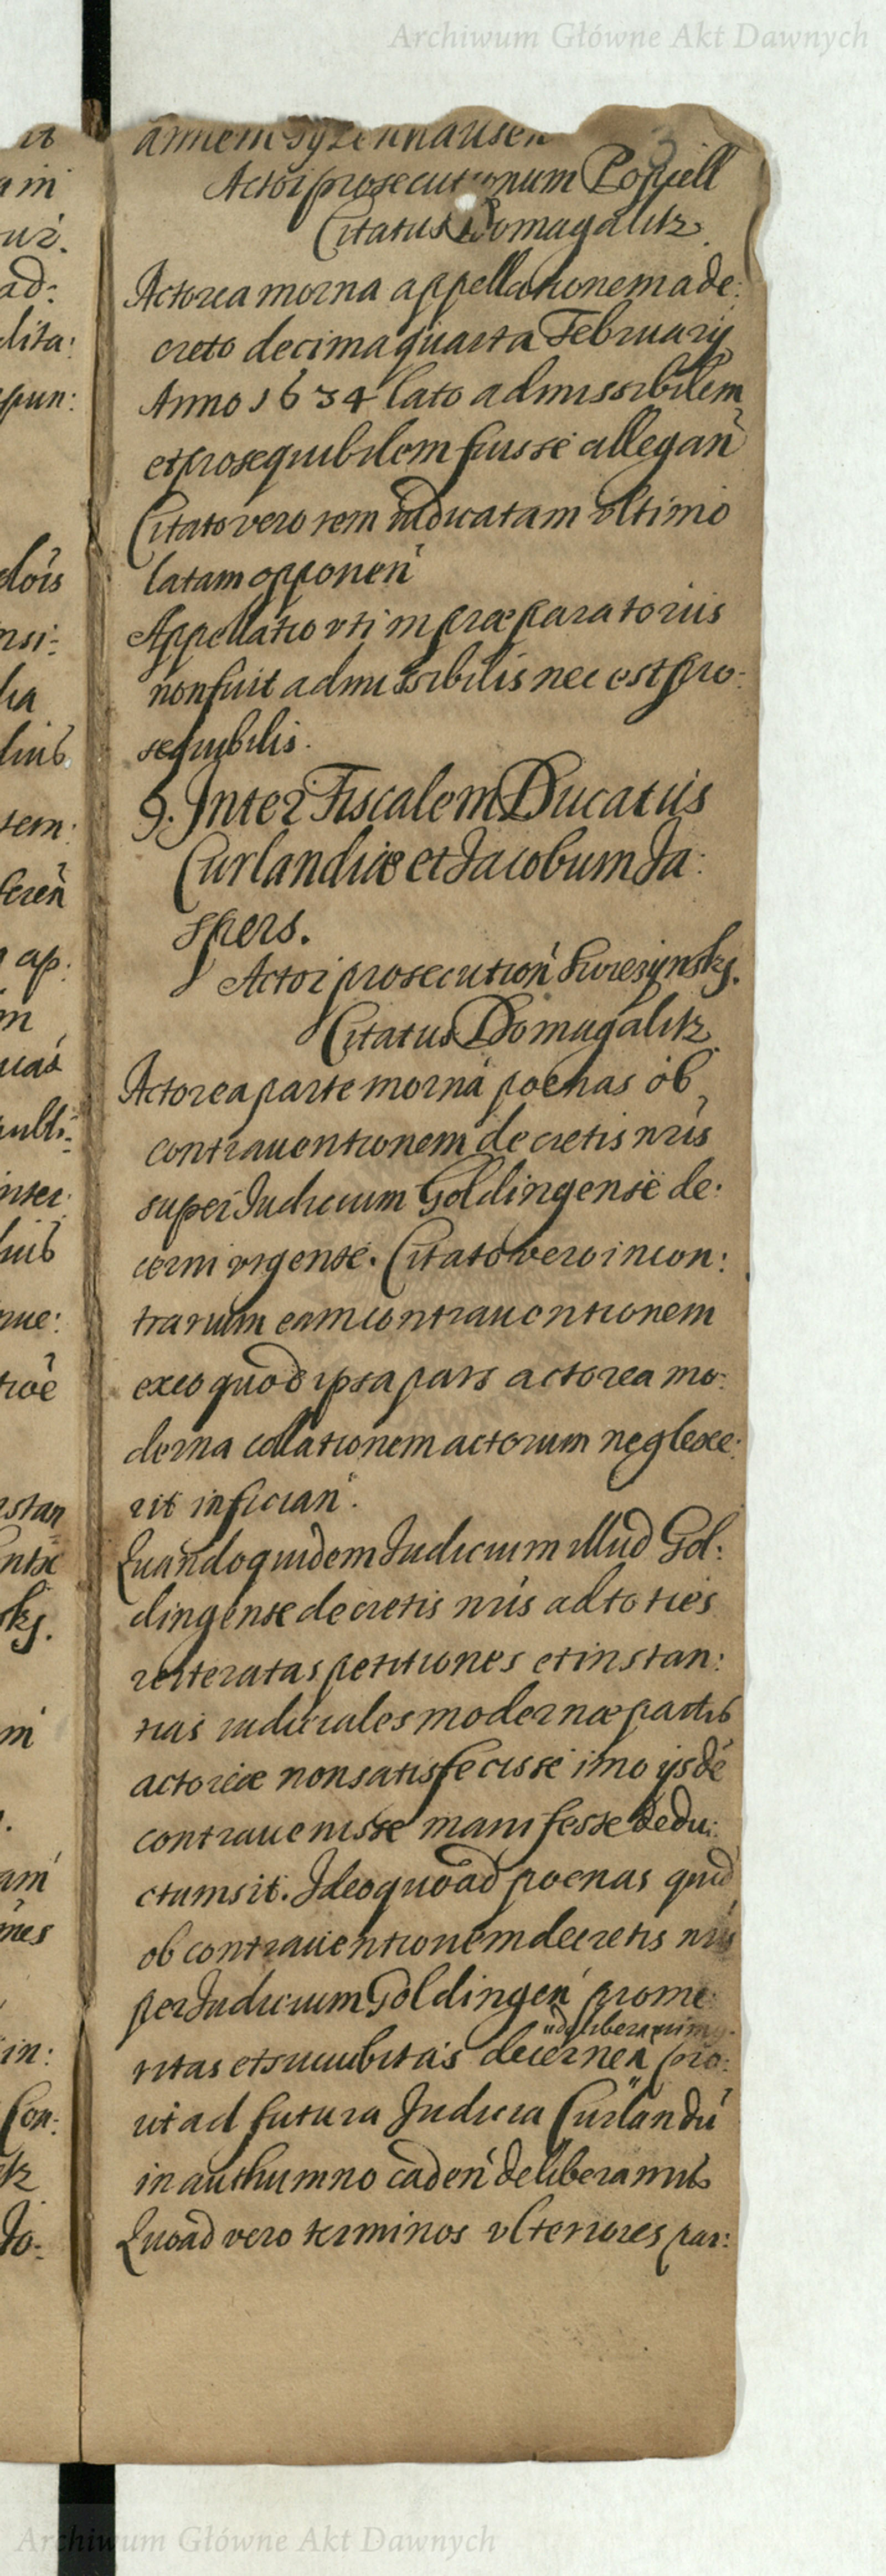 Archiwum Główne Akt Dawnych
annem Tyzenhausen
Actor prosecutionum Popiell
Citatus Domagalitz.
Actorea morna appellationem a de:
creto decima quarta February
Anno 1634 lato admissibilem
et prosequibilem fuisse allegan
Citato vero rem iudicatam vltimo
latam opponen
Appellatio vti in præparatoriis
non fuit admissibilis nec est pro:
sequibilis.
9. Inter Fiscalem Ducatus
Curlandiæ et Jacobum Ja:
spers.
Actor prosecution Swiezynskj.
Citatus Domagalitz.
Actorea parte morna poenas ob
contrauentionem decretis nris
super Judicium Goldingense de:
cerni vrgente. Citato vero in con:
trarium eam contrauentionem
ex eo quod ipsa pars actorea mo:
derna collationem actorum neglexe:
rit infician.
Quandoquidem Judicium illud Gol:
dingense decretis nris ad toties
reiteratas petitiones et instan:
tias iudiciales modernæ partis
actoreæ non satisfecisse imo ijsde
contrauenisse manifesse dedu:
ctum sit. Ideo quoad poenas quid
ob contrauentionem decretis nris
per Judicium Goldingen prome
deliberauimus
ritas et succubitas decernen pro:
ut ad futura Judicia Curlandu
in authumno caden deliberamus
Quoad vero terminos vlteriores par:
it
am
ur.
ad:
dita:
pun:
dois
nsi:
lia
linb
tem:
feren
ap:
m
uas
publi:
inter
uib
nue:
tioe
nstan
ntæ
skj.
m
am
nes
in:
Con:
tz
Jo:
Archiwum Główne Akt Dawnych